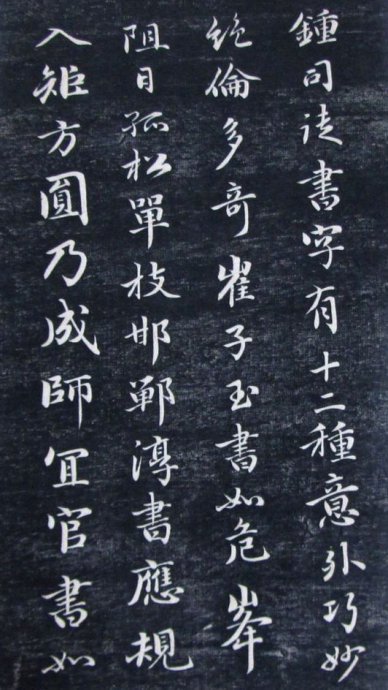 鍾司徒書字有十二種意外巧妙
絕倫多奇崔子玉書如危峯
阻日孤松單枝邯鄲淳書應規
入矩方圓乃成師宜官書如